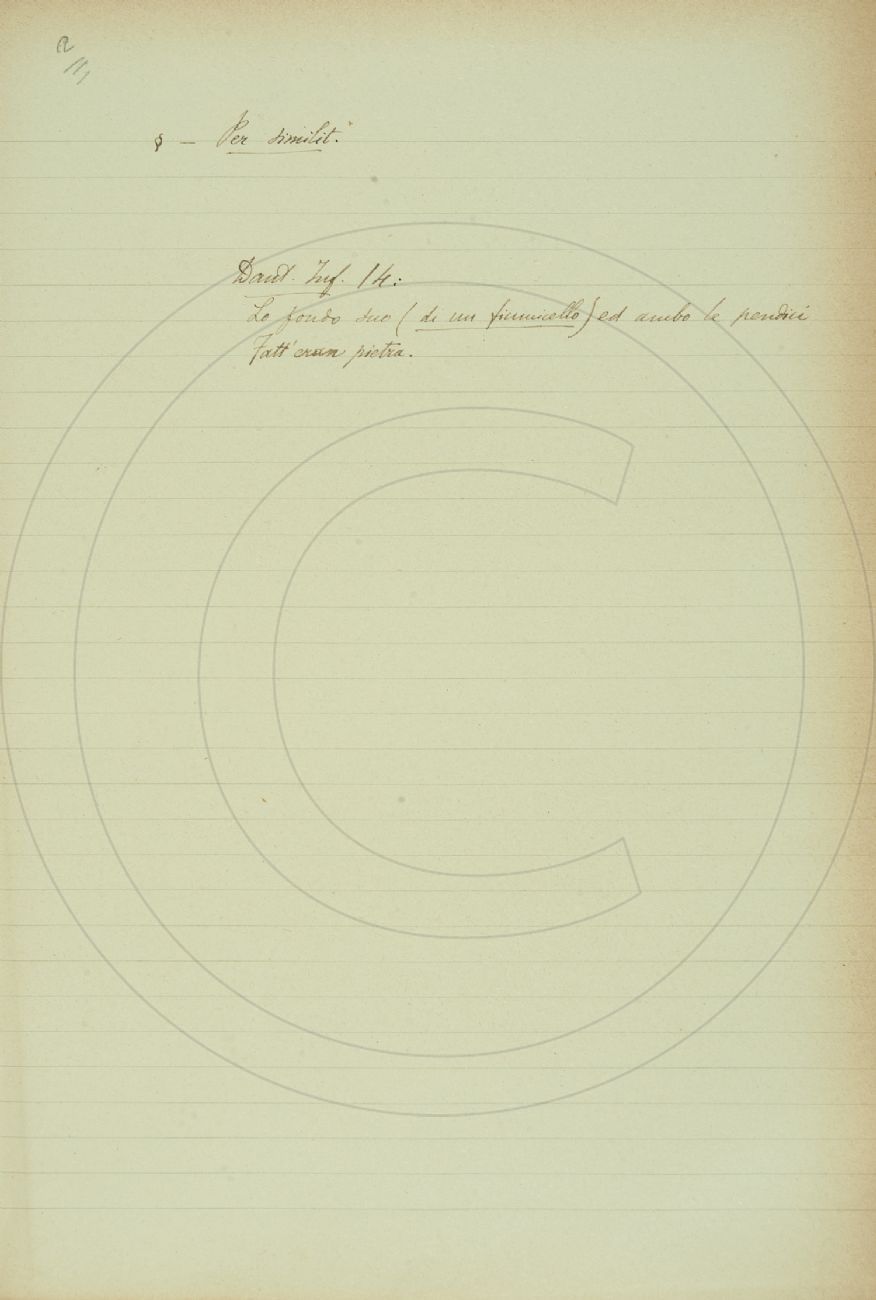 § — Per similit.
Dant. Inf. 14:
Lo fondo suo (di un fiumicello) ed ambo le pendici
Fatt'eran pietra.